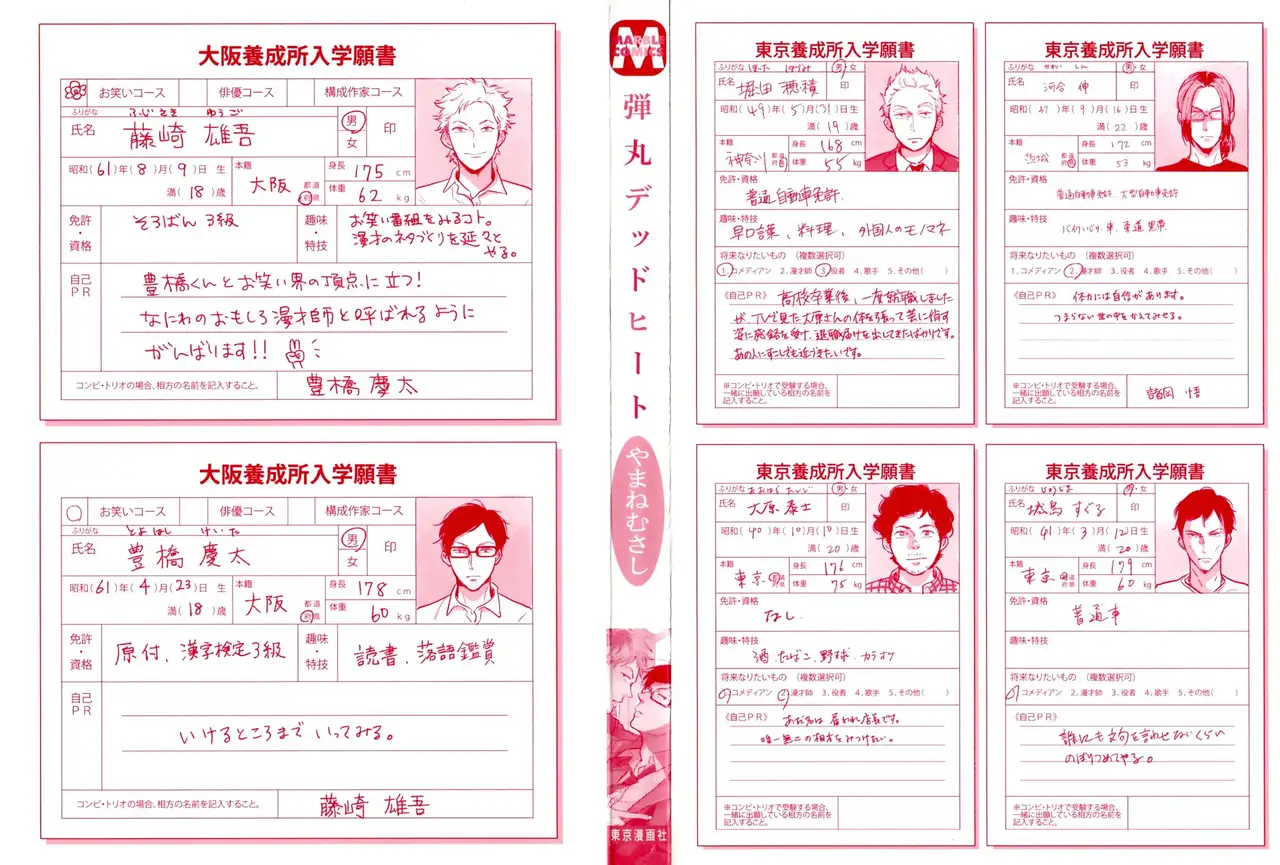 大阪養成所入学願書
お笑いコース 俳優コース 構成作家コース
ふりがな ふじさき ゆうご
氏名 藤崎 雄吾 男・女 印
昭和(61)年(8)月(9)日 生
満(18)歳
本籍 大阪 都道府県
身長 175 cm
体重 62 kg
免許・資格 そろばん 3級
趣味・特技 お笑い番組をみるコト。
漫才のネタづくりを延々と
やる。
自己PR
豊橋くんとお笑い界の頂点に立つ!
なにわのおもしろ漫才師と呼ばれるように
がんばります!!
コンビ・トリオの場合、相方の名前を記入すること。 豊橋 慶太
大阪養成所入学願書
お笑いコース 俳優コース 構成作家コース
ふりがな とよはし けいた
氏名 豊橋 慶太 男・女 印
昭和(61)年(4)月(23)日 生
満(18)歳
本籍 大阪 都道府県
身長 178 cm
体重 60 kg
免許・資格 原付、漢字検定3級
趣味・特技 読書、落語鑑賞
自己PR
いけるところまでいってみる。
コンビ・トリオの場合、相方の名前を記入すること。 藤崎 雄吾
MARBLE COMICS
弾丸デッドヒート
やまねむさし
東京漫画社
東京養成所入学願書
ふりがな ほった ほづみ 男・女
氏名 堀田 穂積 印
昭和(49)年(5)月(31)日生
満(19)歳
本籍 神奈川 都道府県
身長 168 cm
体重 55 kg
免許・資格
普通自動車免許
趣味・特技
早口言葉、料理、外国人のモノマネ
将来なりたいもの (複数選択可)
1.コメディアン 2.漫才師 3.役者 4.歌手 5.その他( )
《自己PR》 高校卒業後、一度就職しました
が、TVで見た大原さんの体を張って芸に徹す
姿に感銘を受け、退職届けを出してきたばかりです。
あの人にすこしでも近づきたいです。
※コンビ・トリオで受験する場合、
一緒に出願している相方の名前を
記入すること。
東京養成所入学願書
ふりがな かわい しん 男・女
氏名 河合 伸 印
昭和(47)年(9)月(16)日生
満(22)歳
本籍 茨城 都道府県
身長 172 cm
体重 53 kg
免許・資格
普通自動車免許、大型自動車免許
趣味・特技
バイクいじり、車、柔道 黒帯
将来なりたいもの (複数選択可)
1.コメディアン 2.漫才師 3.役者 4.歌手 5.その他( )
《自己PR》 体力には自信があります。
つまらない世の中をかえてみせる。
※コンビ・トリオで受験する場合、
一緒に出願している相方の名前を
記入すること。
諸岡 悟
東京養成所入学願書
ふりがな おおはら たいじ 男・女
氏名 大原 泰士 印
昭和(40)年(10)月(10)日生
満(20)歳
本籍 東京 都道府県
身長 176 cm
体重 75 kg
免許・資格
なし
趣味・特技
酒、たばこ、野球、カラオケ
将来なりたいもの (複数選択可)
1.コメディアン 2.漫才師 3.役者 4.歌手 5.その他( )
《自己PR》 あだ名は雇われ店長です。
唯一無二の相方をみつけたい。
※コンビ・トリオで受験する場合、
一緒に出願している相方の名前を
記入すること。
東京養成所入学願書
ふりがな じょうじま 男・女
氏名 城島 すぐる 印
昭和(41)年(3)月(12)日生
満(20)歳
本籍 東京 都道府県
身長 179 cm
体重 60 kg
免許・資格
普通車
趣味・特技
将来なりたいもの (複数選択可)
1.コメディアン 2.漫才師 3.役者 4.歌手 5.その他( )
《自己PR》
誰にも文句を言わせないくらい
のぼりつめてやる。
※コンビ・トリオで受験する場合、
一緒に出願している相方の名前を
記入すること。